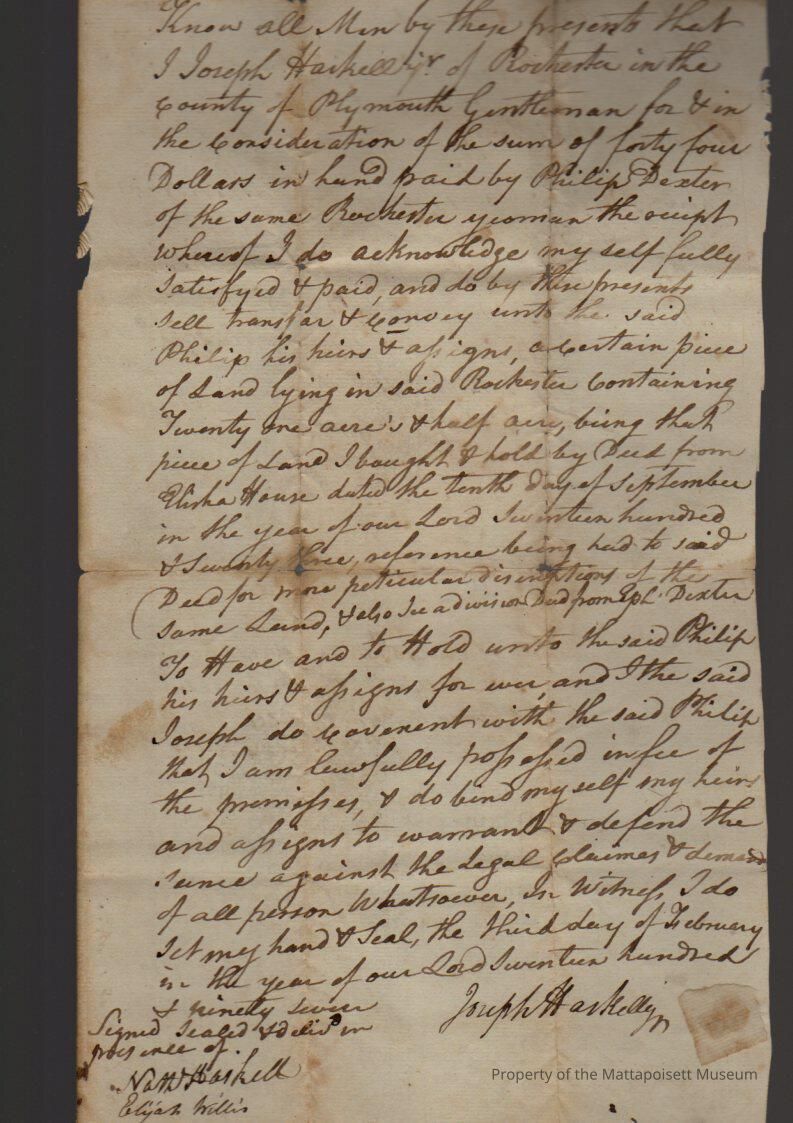 Know all Men by these presents that
I Joseph Haskell jr. of Rochester in the
County of Plymouth Gentleman for & in
the Consideration of the sum of forty four
Dollars in hand paid by Philip Dexter
of the same Rochester yeoman the recipt
whereof I do acknowledge my self fully
satisfyed & paid, and do by these presents
sell transfar & Convey unto the said
Philip his heirs & assigns, a certain piece
of Land lying in said Rochester Containing
Twenty one acre's & half acre, being that
piece of Land I bought & hold by Deed from
Elisha House dated the tenth day of September
in the year of our Lord Seventeen hundred
& Seventy three, reference being had to said
Deed for more peticular discriptions of the
same Land, & also see a division Deed from Eph. Dexter
To Have and to Hold unto the said Philip
his heirs & assigns for ever, and I the said
Joseph do Covenent with the said Philip
that I am lawfully possessed in fee of
the premisses, & do bind my self my heirs
and assigns to warrant & defend the
same against the Legal Claimes & demands
of all person Whatsoever, In Witness I do
set my hand & Seal, the third day of February
in the year of our Lord Seventeen hundred
& ninety seven
Signed Sealed & deliv'd in
presence of.
Joseph Haskell jr
Nath Haskell
Elijah Willis
Property of the Mattapoisett Museum